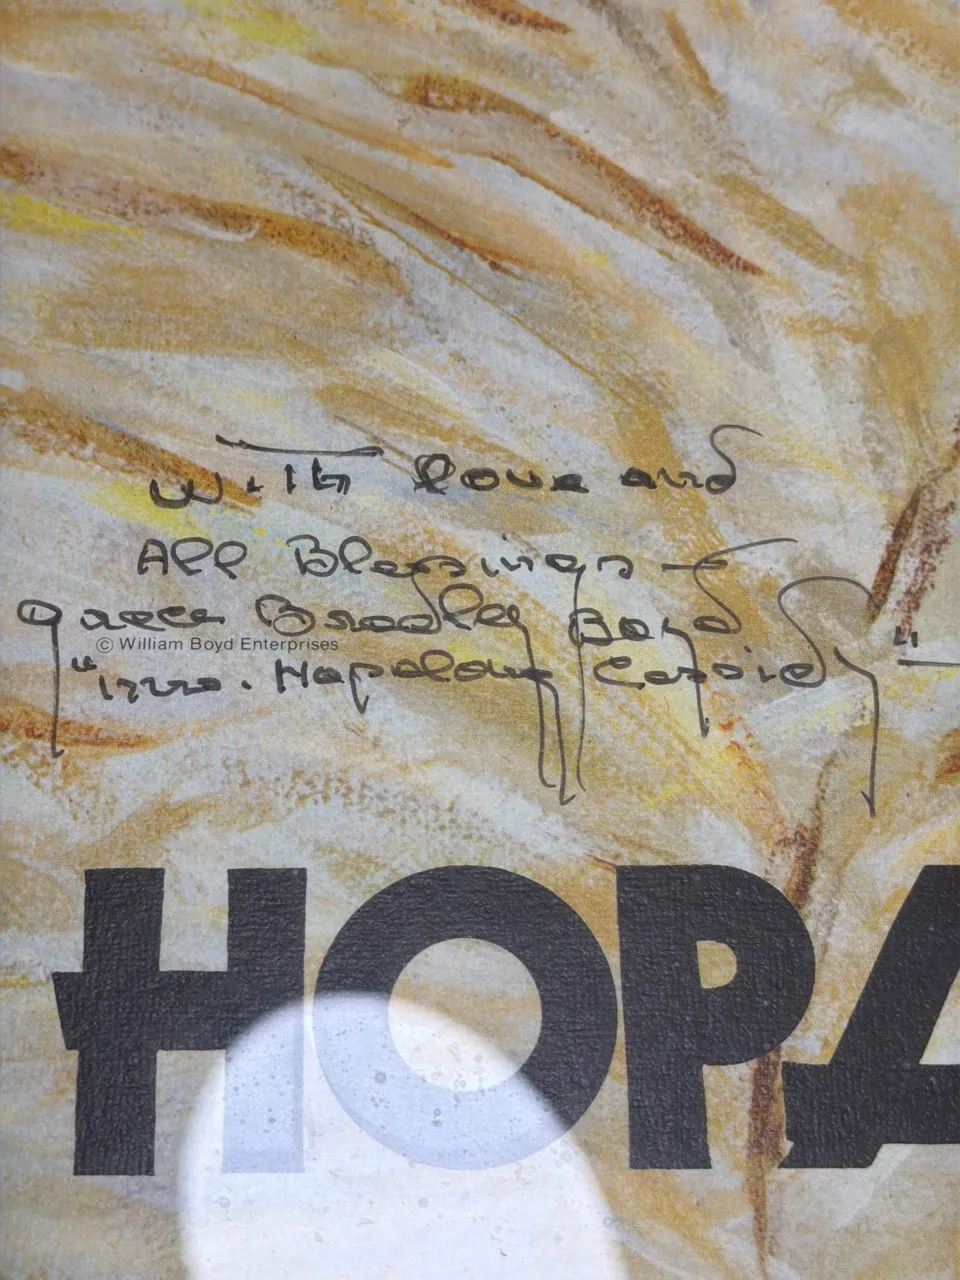 with love and
All Blessings –
Grace Bradley Boyd
© William Boyd Enterprises
"Mrs. Hopalong Cassidy" –
HOPA